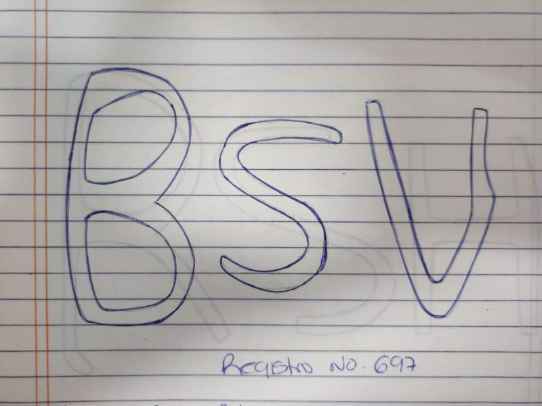 BSV
Registro No. 697